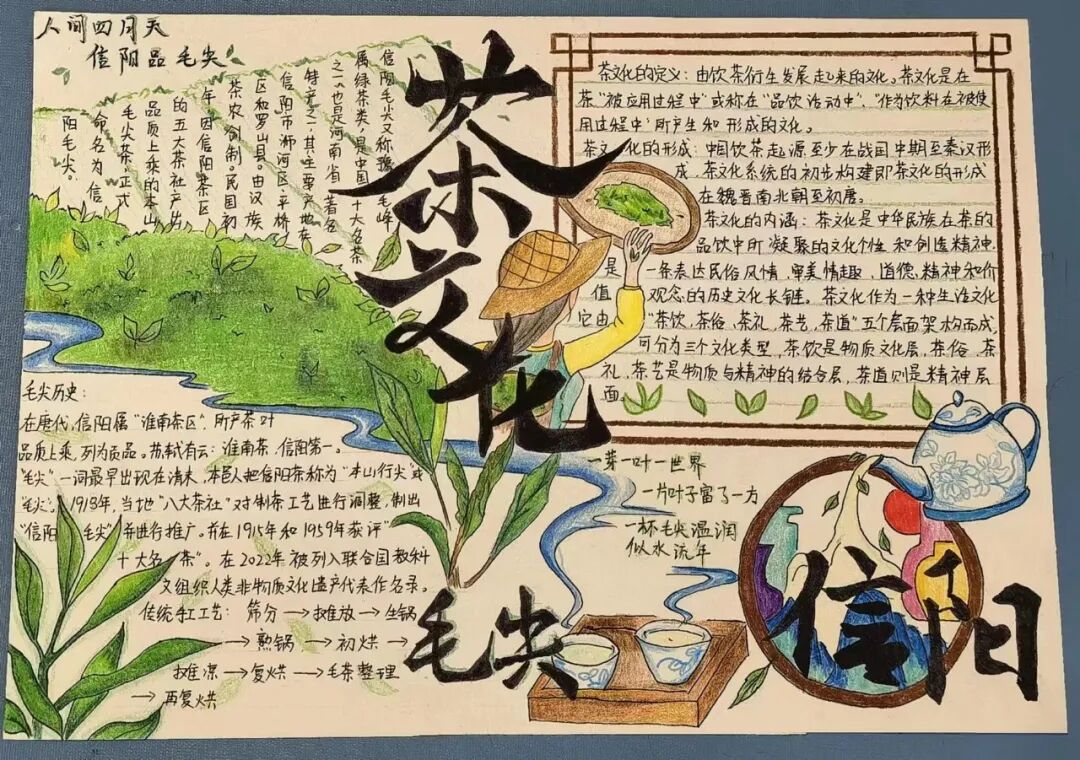 人间四月天
信阳品毛尖
信阳毛尖又称豫毛峰
属绿茶类,是中国十大名茶
之一,也是河南省著名
特产之一,其主要产地在
信阳市浉河区、平桥
区和罗山县。由汉族
茶农创制。民国初
年,因信阳茶区
的五大茶社产出
品质上乘的本山
毛尖茶,正式
命名为"信
阳毛尖"。
茶文化
茶文化的定义:由饮茶衍生发展起来的文化。茶文化是在
茶"被应用过程中"或称在"品饮活动中"、"作为饮料在被使
用过程中"所产生和形成的文化。
茶文化的形成:中国饮茶起源至少在战国中期至秦汉形
成,茶文化系统的初步构建即茶文化的形成
在魏晋南北朝至初唐。
茶文化的内涵:茶文化是中华民族在茶的
品饮中所凝聚的文化个性和创造精神.
是一条表达民俗风情、审美情趣、道德、精神和价
值观念的历史文化长链。茶文化作为一种生活文化
它由"茶饮、茶俗、茶礼、茶艺、茶道"五个层面架构而成,
可分为三个文化类型,茶饮是物质文化层,茶俗、茶
礼、茶艺是物质与精神的结合层,茶道则是精神层
面。
毛尖历史:
在唐代,信阳属"淮南茶区",所产茶叶
品质上乘,列为贡品。苏轼有云:淮南茶,信阳第一。
"毛尖"一词最早出现在清末,本邑人把信阳茶称为"本山行尖"或
"毛尖"。1913年,当地"八大茶社"对制茶工艺进行调整,制出
"信阳毛尖"并进行推广。并在1915年和1959年获评"
十大名茶"。在2022年被列入联合国教科
文组织人类非物质文化遗产代表作名录。
传统手工艺:筛分→摊放→生锅
→熟锅→初烘→
摊凉→复烘→毛茶整理
→再复烘
一芽一叶一世界
一片叶子富了一方
一杯毛尖温润
似水流年
毛尖
信阳